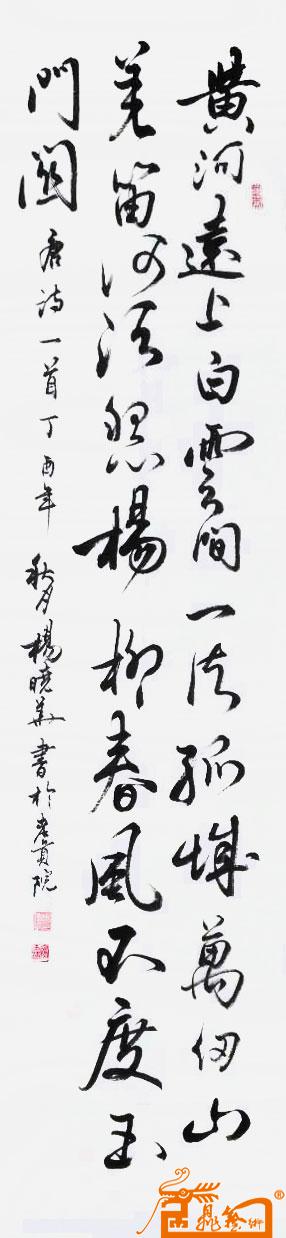 黄河遠上白雲間一片孤城萬仞山
羌笛何須怨楊柳春風不度玉
門關
唐诗一首丁酉年秋月楊曉美書於老貢院